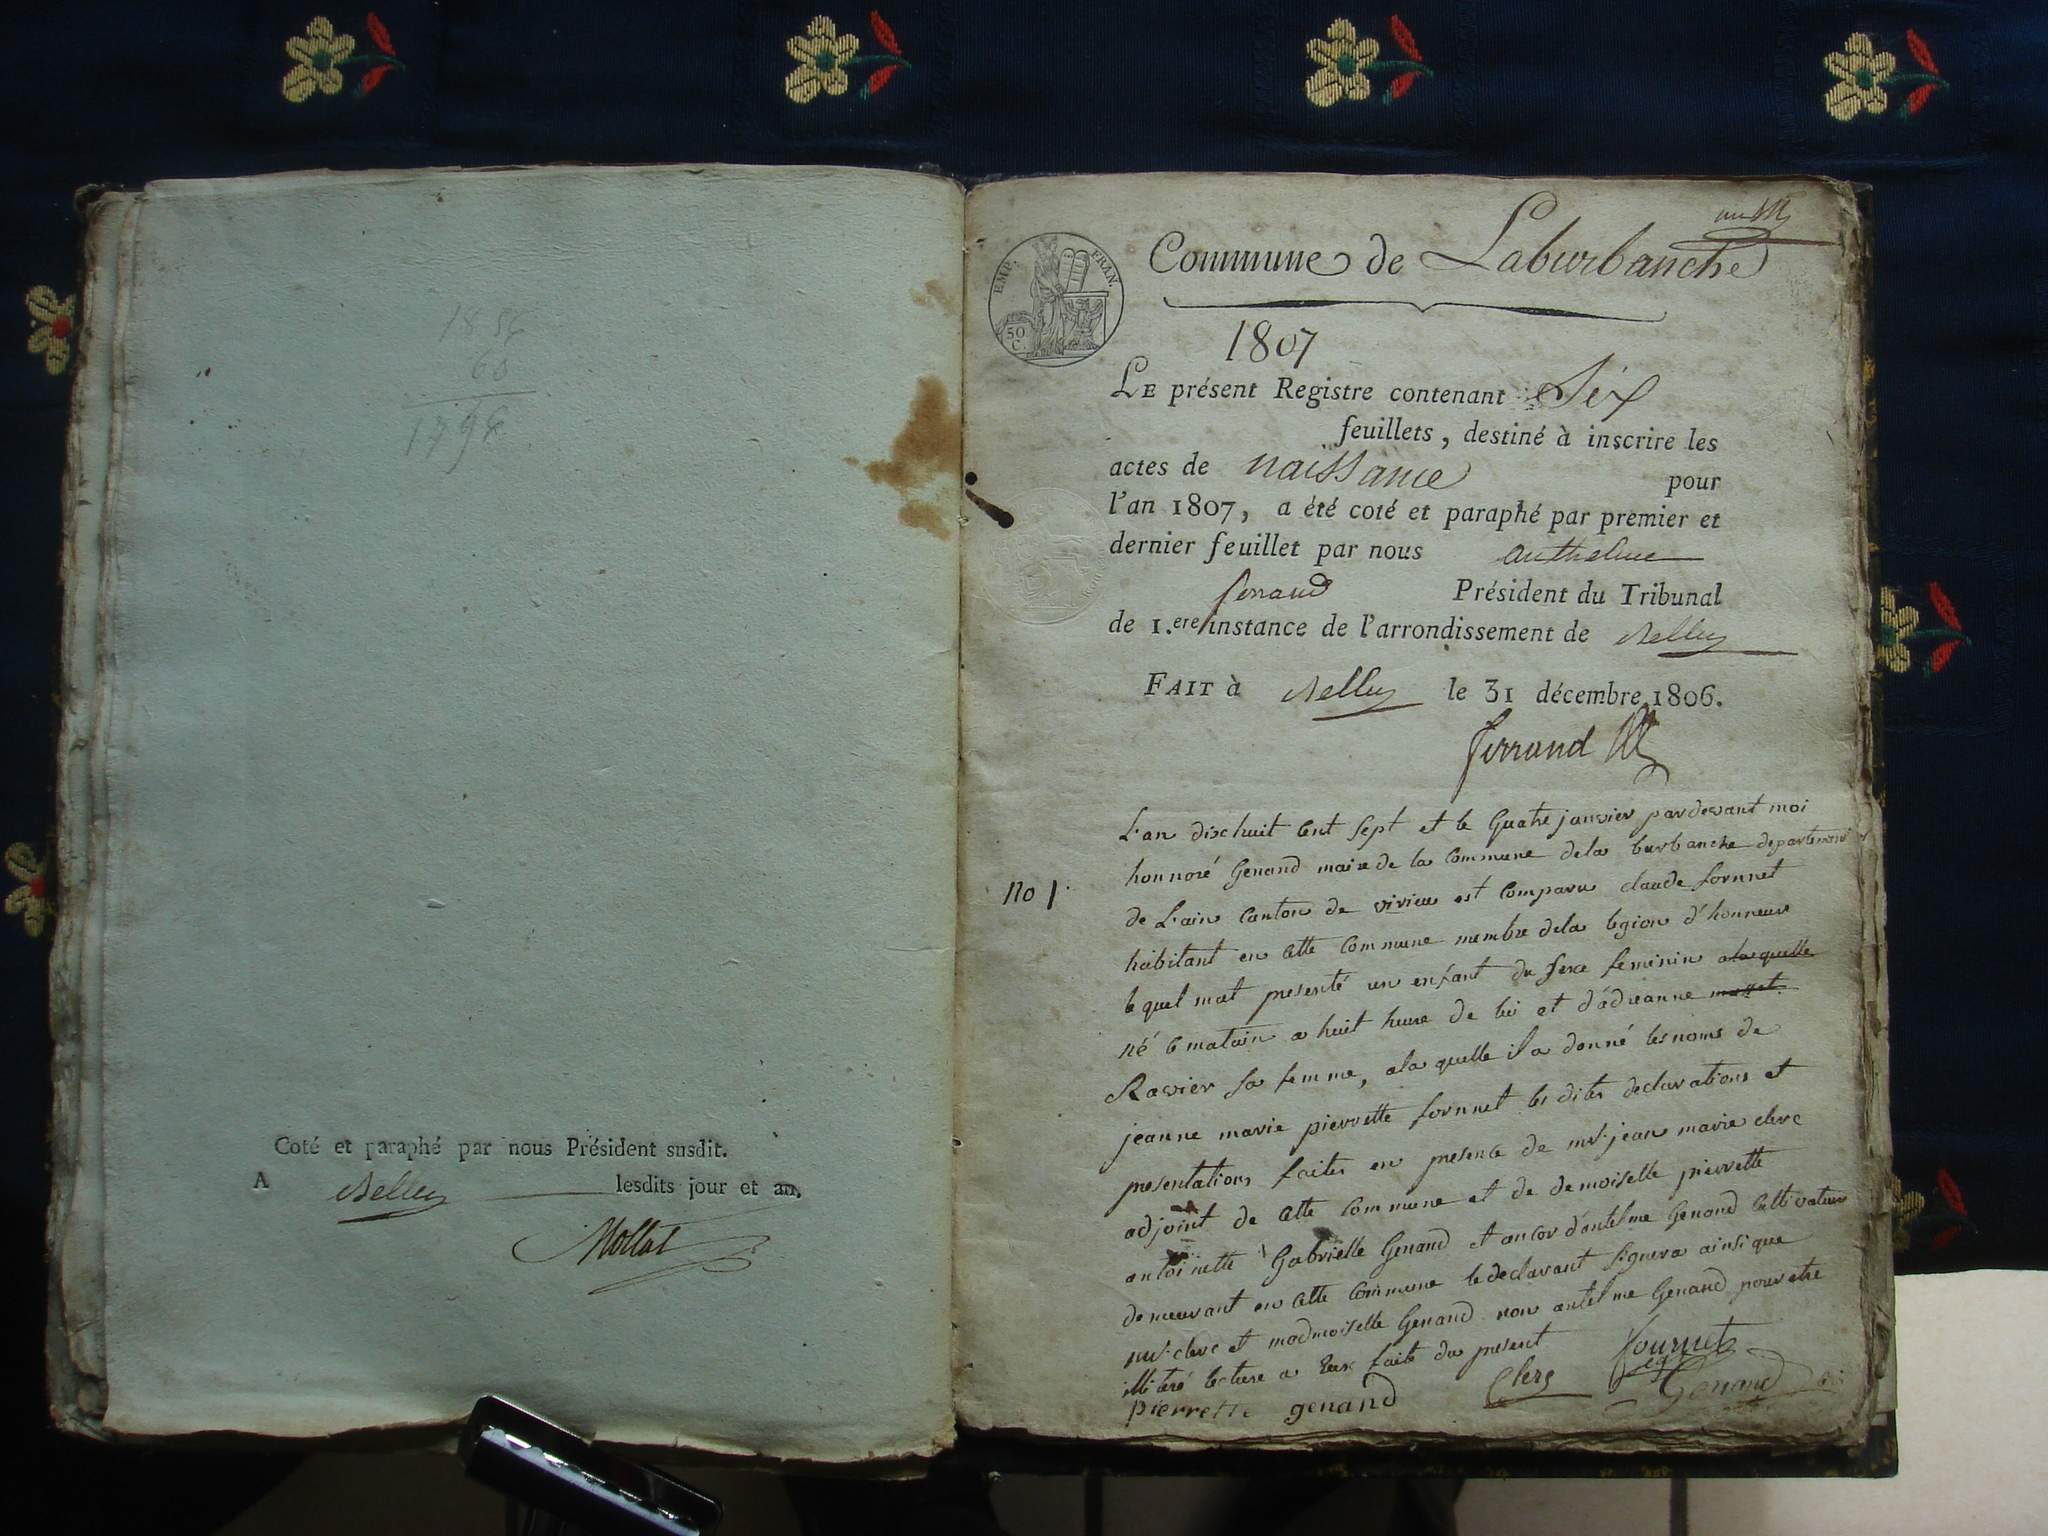 1854
60
1794
Coté et paraphé par nous Président susdit.
A Belley lesdits jour et an.
Mollat
Commune de Laburbanche
EMP. FRAN.
50
C.
1807
LE présent Registre contenant Six
feuillets, destiné à inscrire les
actes de naissance pour
l'an 1807, a été coté et paraphé par premier et
dernier feuillet par nous anthelme
ferrand Président du Tribunal
de 1.ere instance de l'arrondissement de Belley
FAIT à Belley le 31 décembre 1806.
ferrand
L'an dix huit cent sept et le quatre janvier pardevant moi
honnoré Genand maire de la commune dela burbanche departement
no 1
de L'ain canton de virieu est comparu claude fornnet
habitant en cette commune membre dela legion d'honneur
le quel mat presenté un enfant du sexe feminin alaquelle
né le matain a huit heure de lui et d'adrianne
Ravier sa femme, ala quelle il a donné les noms de
jeanne marie pierrette fornnet les dites declarations et
presentations faites en presence de mr. jean marie clerc
adjoint de cette commune et de demoiselle pierrette
antoinette Gabrielle Genand et ancor d'antelme Genand cultivateur
demeurant en cette commune le declarant signera ainsi que
mr. clerc et madmoiselle Genand non antelme Genand pour etre
illiteré lecture a eux faite du present
fournet
pierrette genand
Clerc
Genand